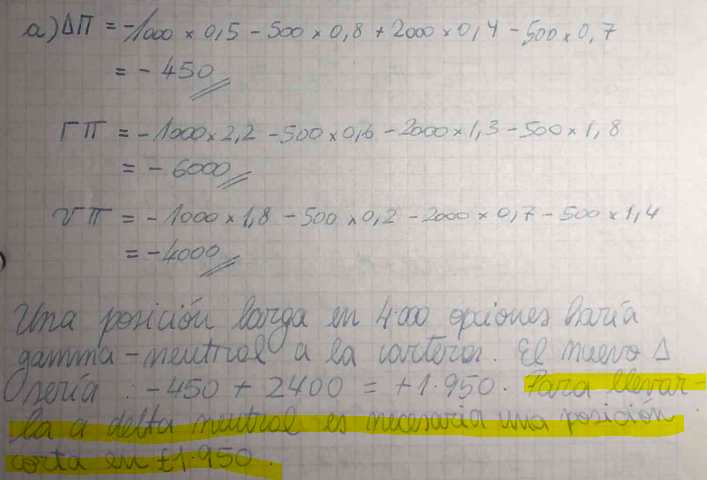 a) ΔΠ = -1000 × 0,5 - 500 × 0,8 + 2000 × 0,4 - 500 × 0,7
= - 450
ΓΠ = - 1000 × 2,2 - 500 × 0,6 - 2000 × 1,3 - 500 × 1,8
= - 6000
νΠ = - 1000 × 1,8 - 500 × 0,2 - 2000 × 0,7 - 500 × 1,4
= -4000
Una posición larga en 4.000 opciones haría
gamma-neutral a la cartera. El nuevo Δ
sería: -450 + 2400 = +1.950. Para llevar-
la a delta neutral es necesaria una posición
corta en £1.950.